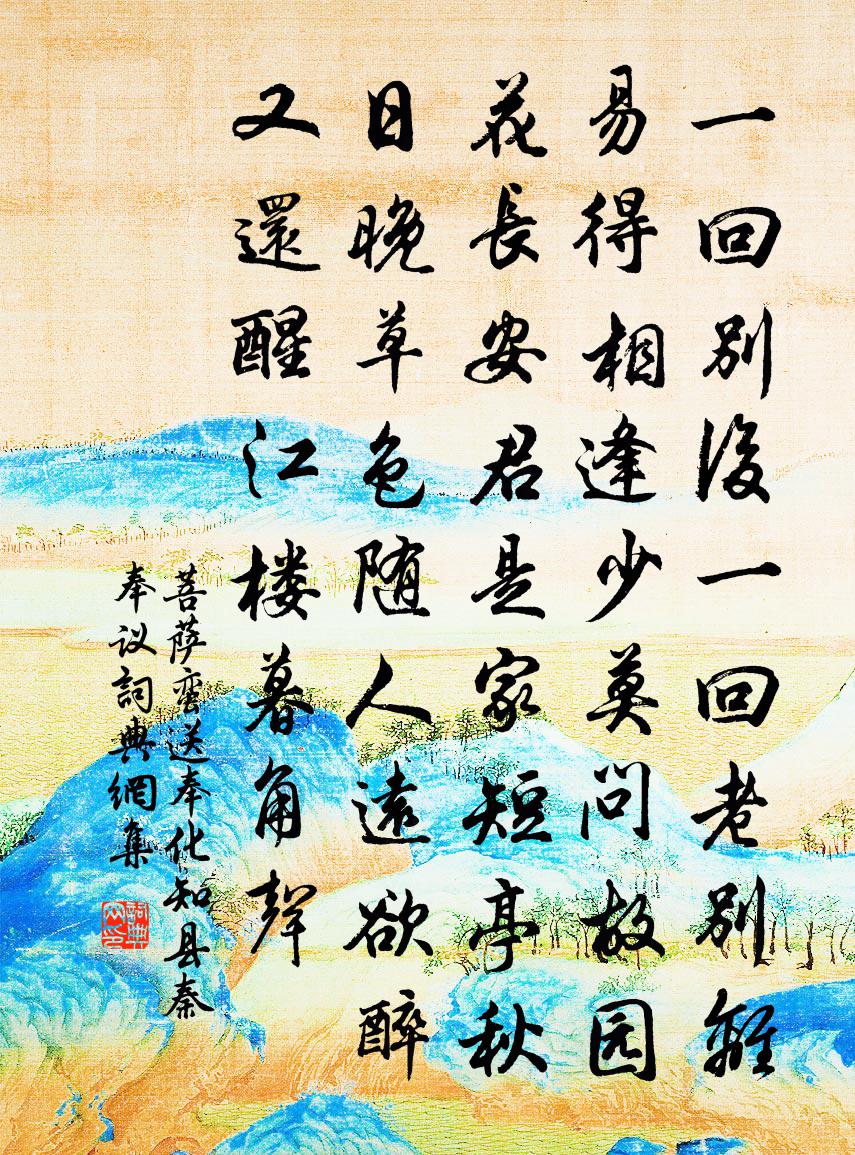 一回别後一回老别離
易得相逢少莫问故园
花長安君是家短亭秋
日晚草色随人遠欲醉
又還醒江楼暮角聲
菩萨蛮送奉化知县秦
奉议詞典網集